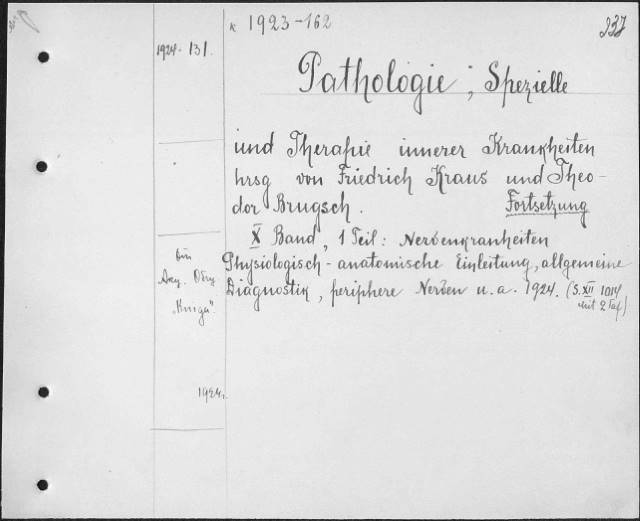 K 1923-162
237
1924-131.
Pathologie; Spezielle
und Therapie innerer Krankheiten
hrsg von Friedrich Kraus und Theo-
dor Brugsch. Fortsetzung
X Band, 1 Teil: Nervenkrankheiten
Physiologisch-anatomische Einleitung, allgemeine
Diagnostik, periphere Nerven u. a. 1924. (S. XII 1014
mit 2 Taf)
"Kniga"
1924.